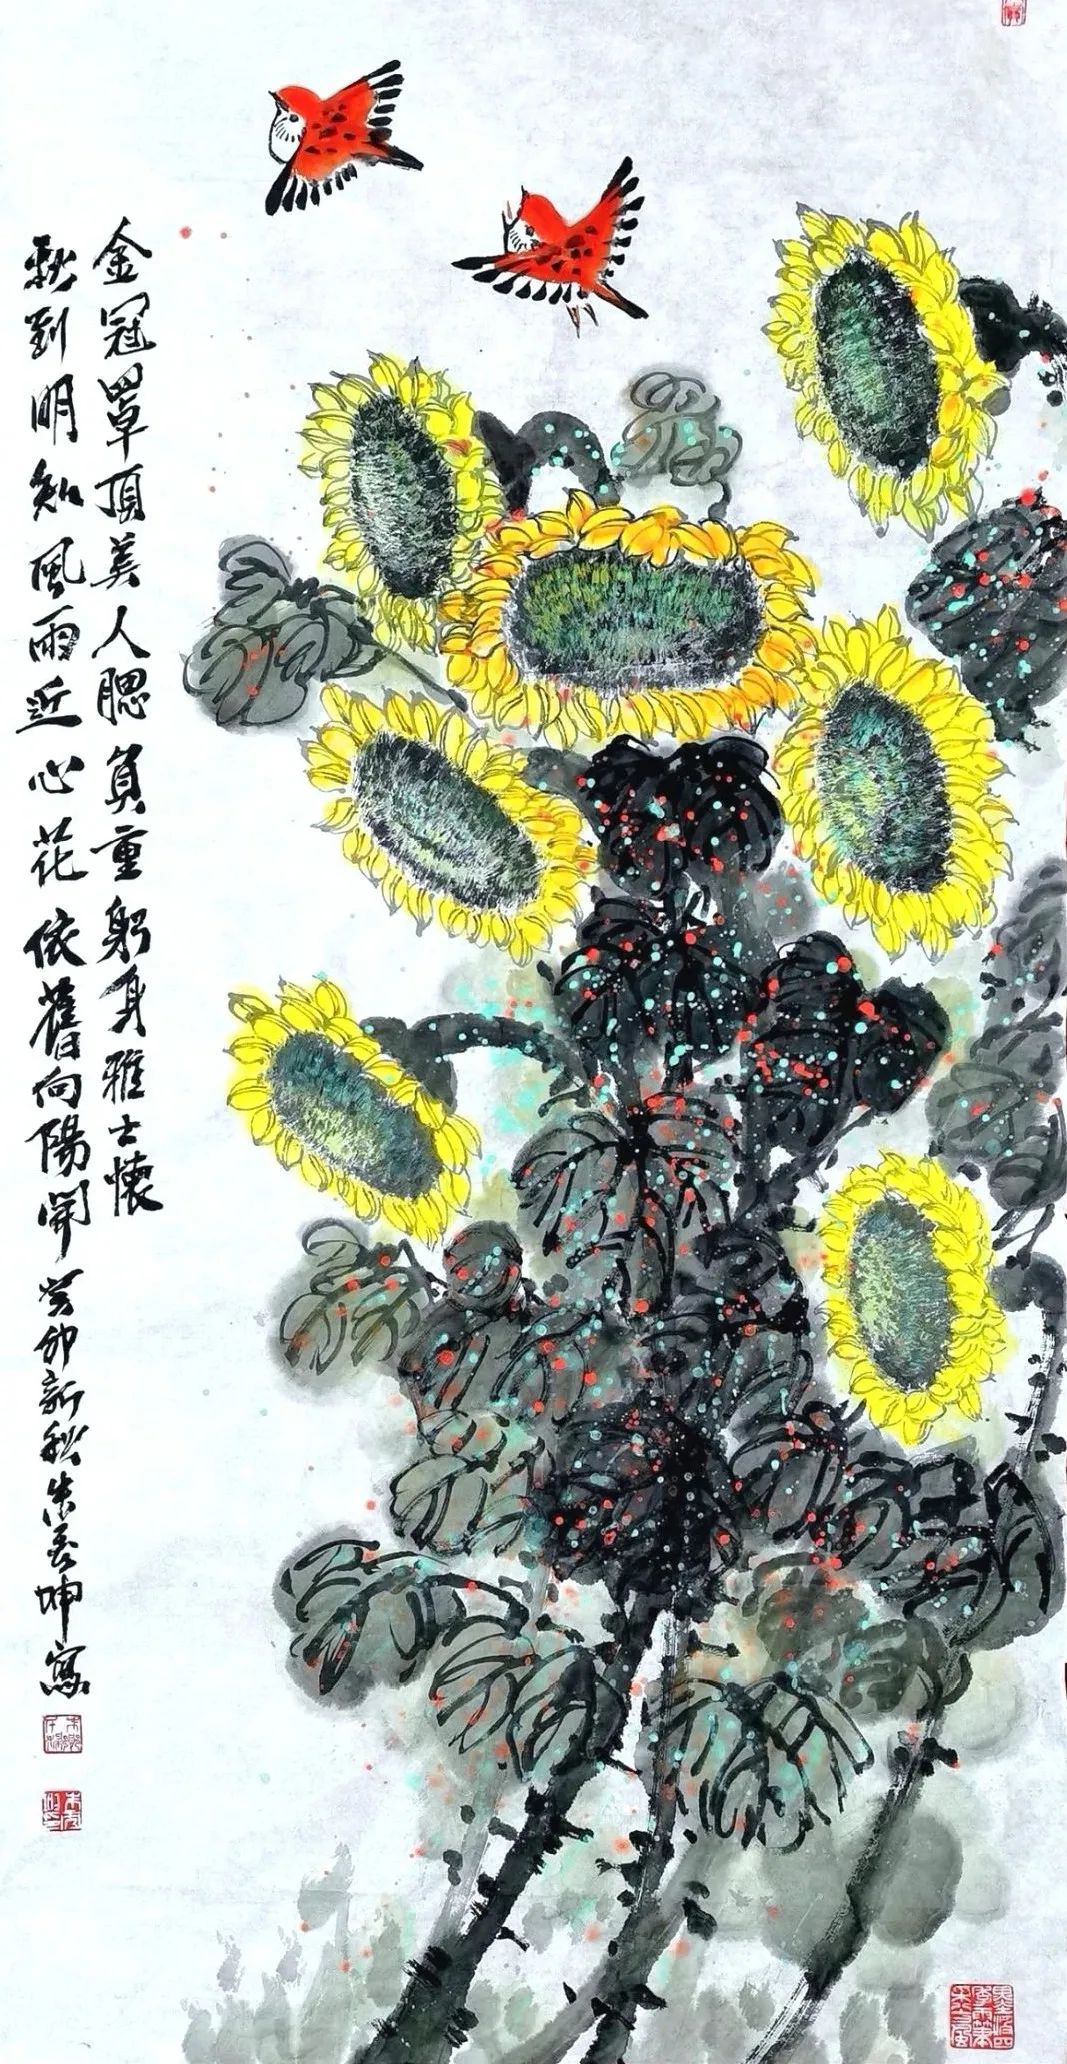 金冠罩頂美人腮負重躬身雅士懷
秋到明知風雨近心花依舊向陽開癸卯新秋朱
坤寫